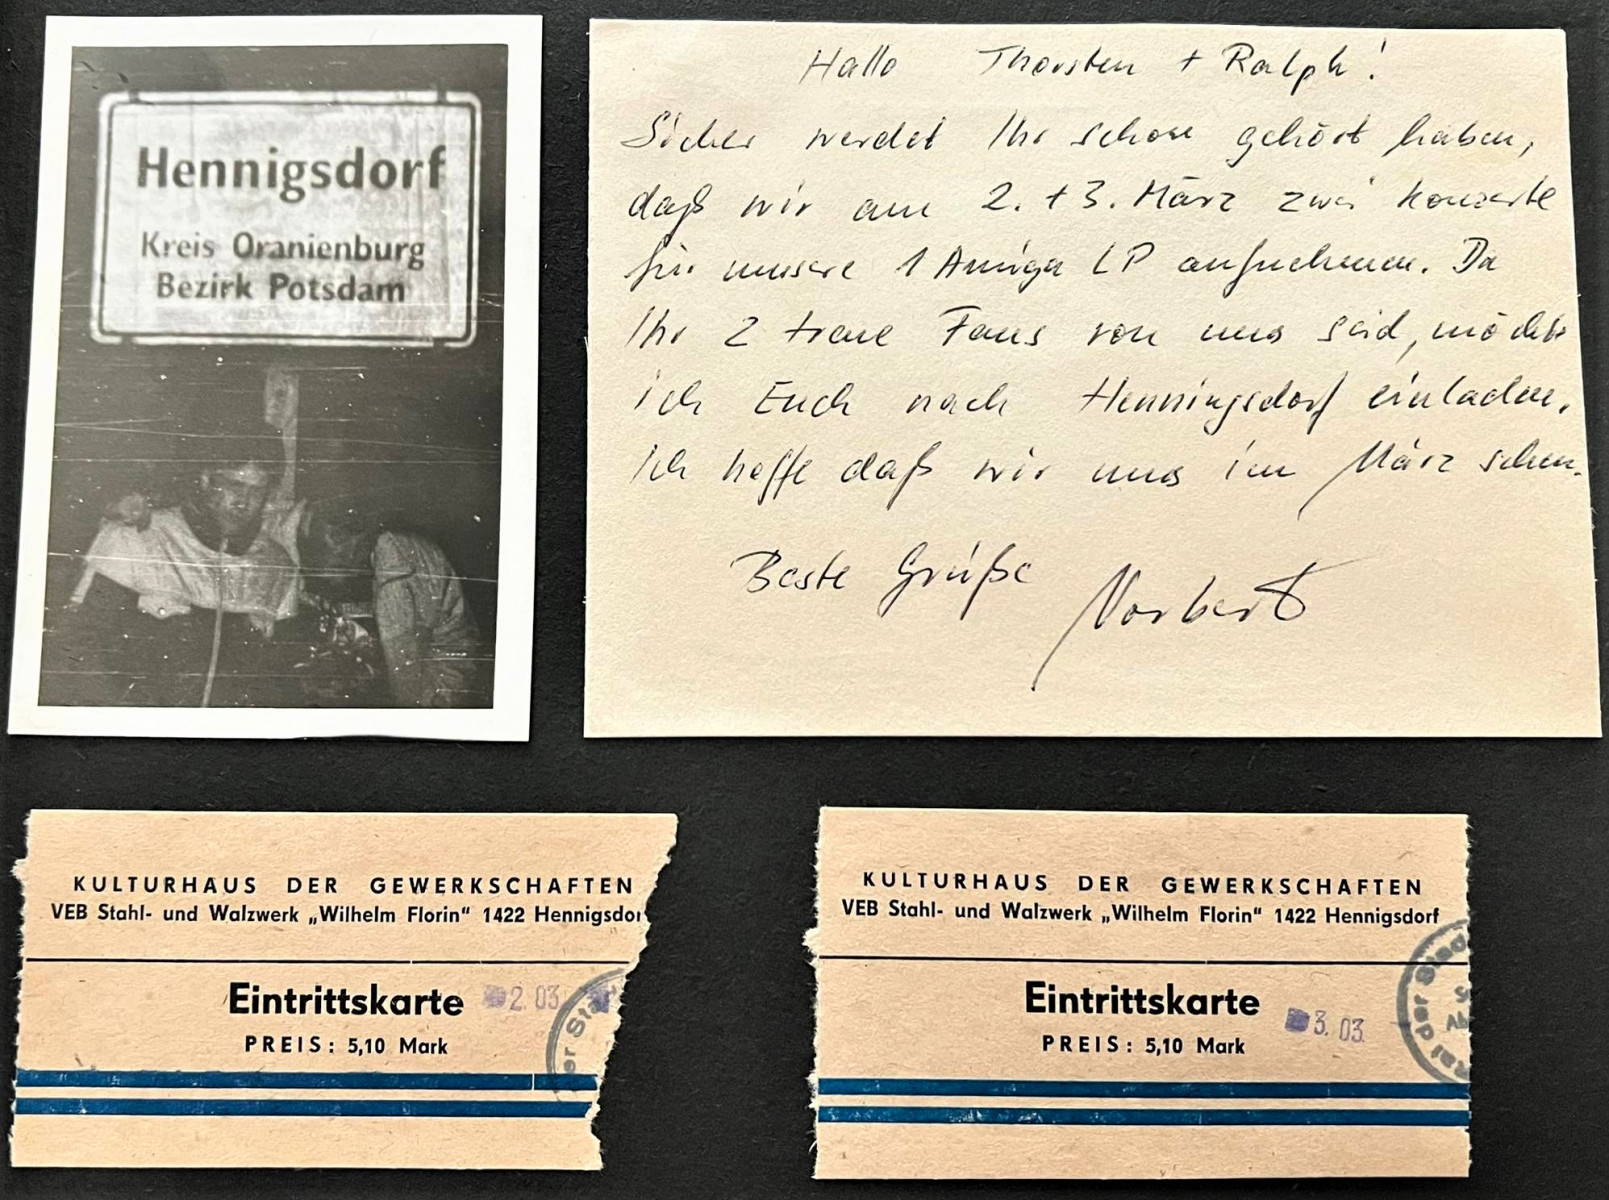 Hennigsdorf
Kreis Oranienburg
Bezirk Potsdam
Hallo Thorsten + Ralph!
Sicher werdet Ihr schon gehört haben,
daß wir am 2. + 3. März zwei Konzerte
für unsere 1 Amiga LP aufnehmen. Da
Ihr 2 treue Fans von uns seid, möchte
ich Euch nach Henningsdorf einladen.
Ich hoffe daß wir uns im März sehen.
Beste Grüße Norbert
KULTURHAUS DER GEWERKSCHAFTEN
VEB Stahl- und Walzwerk „Wilhelm Florin“ 1422 Hennigsdor
Eintrittskarte 2. 03
PREIS: 5,10 Mark
er Sta
KULTURHAUS DER GEWERKSCHAFTEN
VEB Stahl- und Walzwerk „Wilhelm Florin“ 1422 Hennigsdorf
Eintrittskarte 3. 03.
PREIS: 5,10 Mark
Rat der Stad